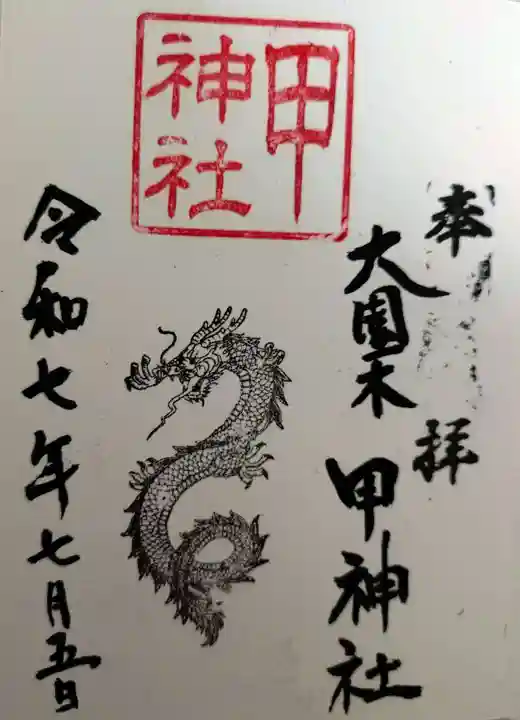 甲神社
奉拝
大園木
甲神社
令和七年七月五日